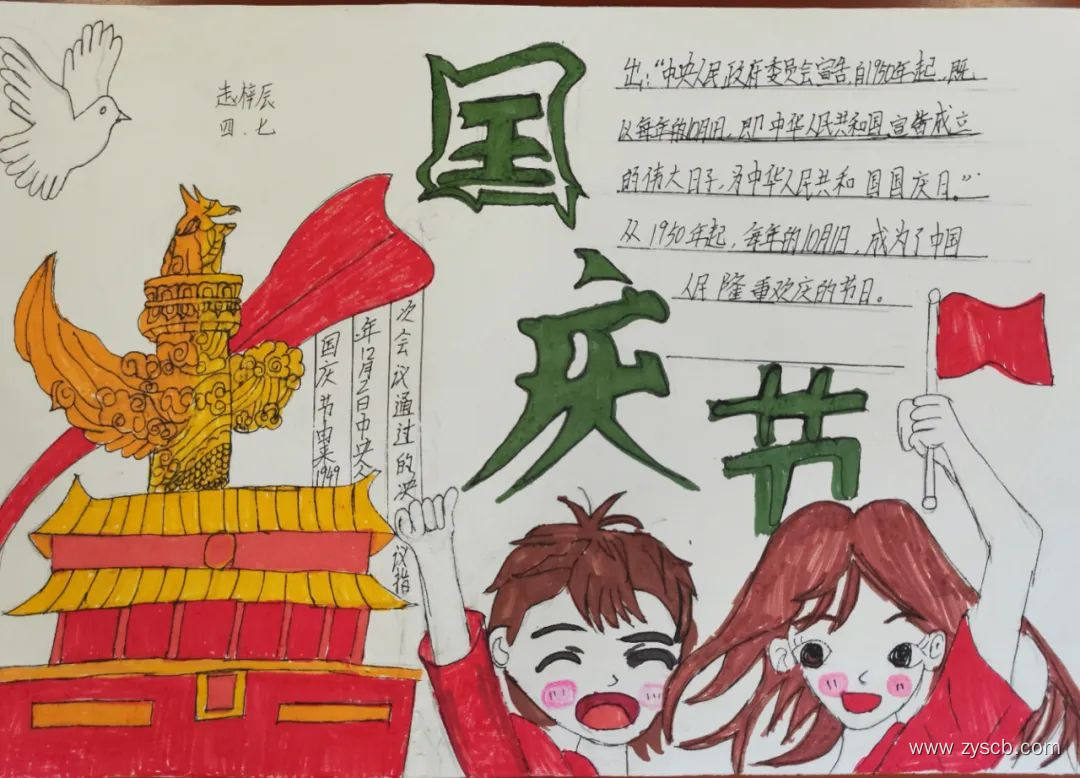 赵梓辰
四.七
国
庆
节
国庆节由来1949
年12月2日中央人
次会议通过的决议指
出:“中央人民政府委员会宣告自1950年起,既
以每年的10月1日,即中华人民共和国宣告成立
的伟大日子,为中华人民共和国国庆日。”
从1950年起,每年的10月1日,成为了中国
人民隆重欢庆的节日。
www.zyscb.com